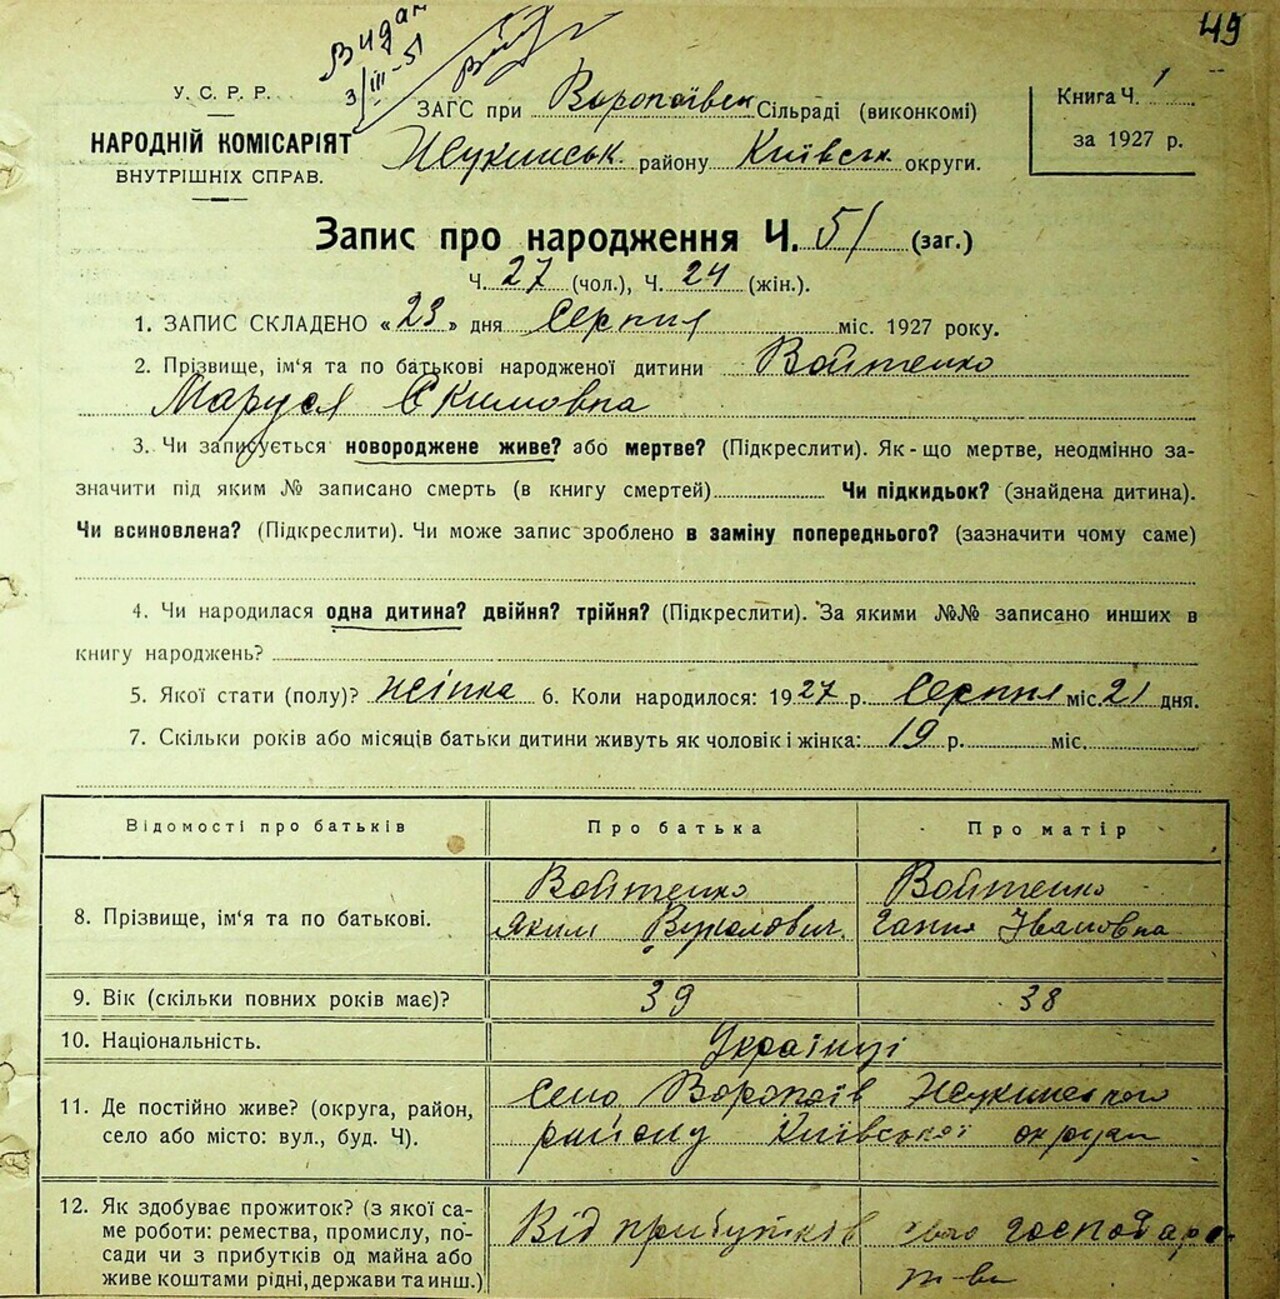 49
Видан
3/III-51
У. С. Р. Р.
НАРОДНІЙ КОМІСАРІЯТ
ВНУТРІШНІХ СПРАВ.
ЗАГС при Воропаївськ Сільраді (виконкомі)
Жукинськ. району Київськ. округи.
Книга Ч. 1
за 1927 р.
Запис про народження Ч. 51 (заг.)
Ч. 27 (чол.), Ч. 24 (жін.).
1. ЗАПИС СКЛАДЕНО «23» дня Серпня міс. 1927 року.
2. Прізвище, ім'я та по батькові народженої дитини Войтенко
Маруся Єкимовна
3. Чи записується новороджене живе? або мертве? (Підкреслити). Як-що мертве, неодмінно за-
значити під яким № записано смерть (в книгу смертей) Чи підкидьок? (знайдена дитина).
Чи всиновлена? (Підкреслити). Чи може запис зроблено в заміну попереднього? (зазначити чому саме)
4. Чи народилася одна дитина? двійня? трійня? (Підкреслити). За якими №№ записано инших в
книгу народжень?
5. Якої стати (полу)? жінка 6. Коли народилося: 1927 р. Серпня міс. 21 дня.
7. Скільки років або місяців батьки дитини живуть як чоловік і жінка: 19 р. міс.
Відомості про батьків Про батька Про матір
8. Прізвище, ім'я та по батькові.
Войтенко Войтенко
Яким Вуколович. Ганна Івановна
9. Вік (скільки повних років має)? 39 38
10. Національність. Українці
11. Де постійно живе? (округа, район,
село або місто: вул., буд. Ч).
Село Воропаїв Жукинського
району Київської округи
12. Як здобуває прожиток? (з якої са-
ме роботи: ремества, промислу, по-
сади чи з прибутків од майна або
живе коштами рідні, держави та инш.)
Від прибутків свого господарс-
т-ва